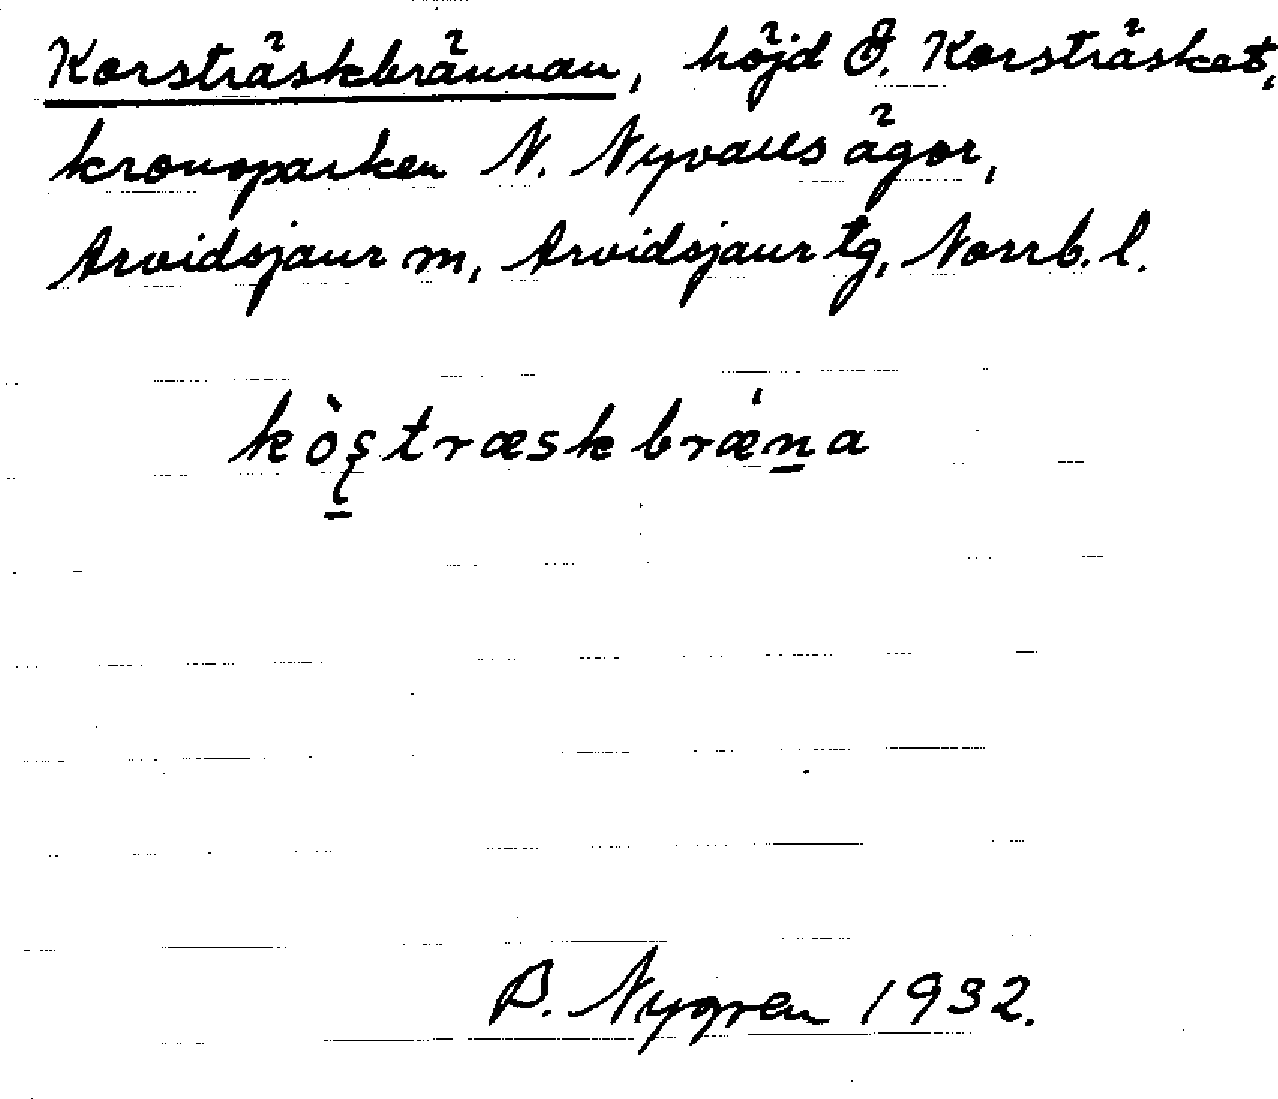 Korsträskbrännan, höjd Ö. Korsträsket,
kronoparken N. Nyvalls ägor,
Arvidsjaur m, Arvidsjaur tg, Norrb. l.
kòş̱træskbræ̍ṉa
B. Nygren 1932.